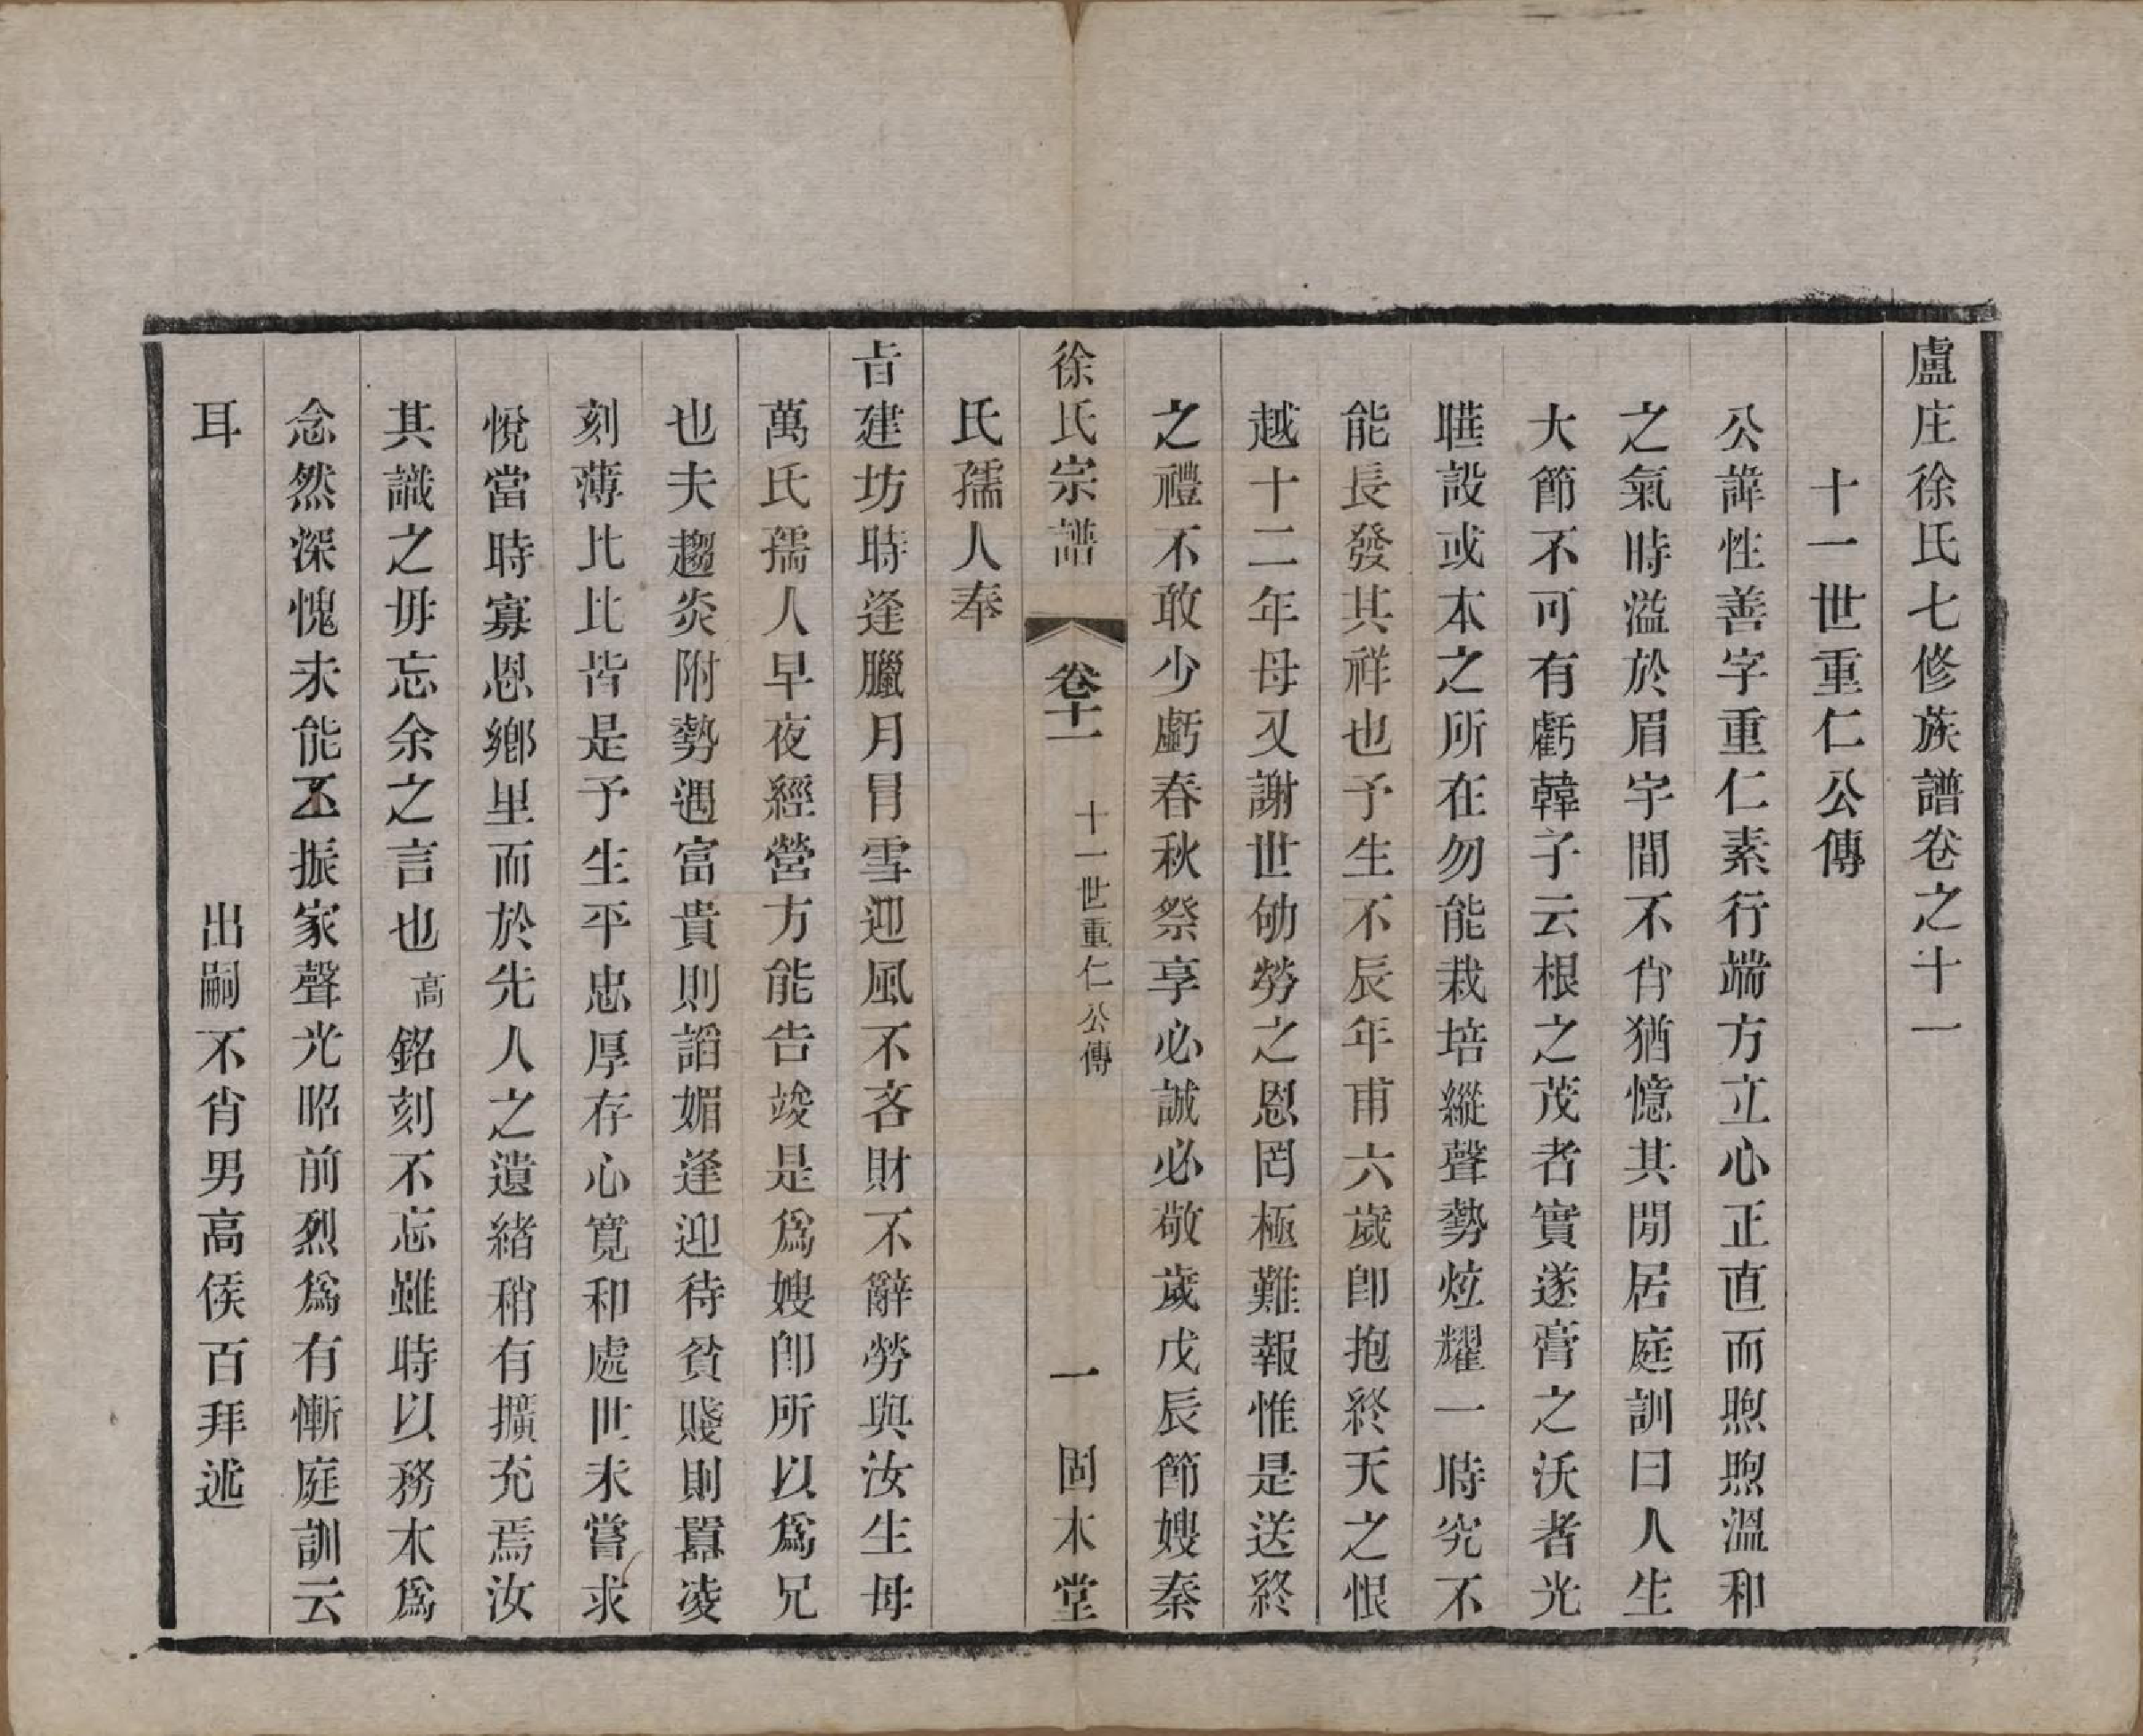 盧庄徐氏七修族譜卷之十一
十一世重仁公傳
公諱性善字重仁素行端方立心正直而煦煦溫和
之氣時溢於眉宇間不肖猶憶其閒居庭訓曰人生
大節不可有虧韓子云根之茂者實遂膏之沃者光
曄設或本之所在勿能栽培縱聲勢炫耀一時究不
能長發其祥也予生不辰年甫六歲卽抱終天之恨
越十二年母又謝世劬勞之恩罔極難報惟是送終
之禮不敢少虧春秋祭享必誠必敬歲戊辰節嫂秦
徐氏宗譜 卷十一 十一世重仁公傳 一 固本堂
氏孺人奉
旨建坊時逢臘月冐雪迎風不吝財不辭勞與汝生母
萬氏孺人早夜經營方能告竣是爲嫂卽所以爲兄
也夫趨炎附勢遇富貴則謟媚逢迎待貧賤則嚚凌
刻薄比比皆是予生平忠厚存心寬和處世未嘗求
悅當時寡恩鄉里而於先人之遺緒稍有擴充焉汝
其識之毋忘余之言也高銘刻不忘雖時以務本爲
念然深愧未能丕振家聲光昭前烈爲有慚庭訓云
耳 出嗣不肖男高俟百拜述